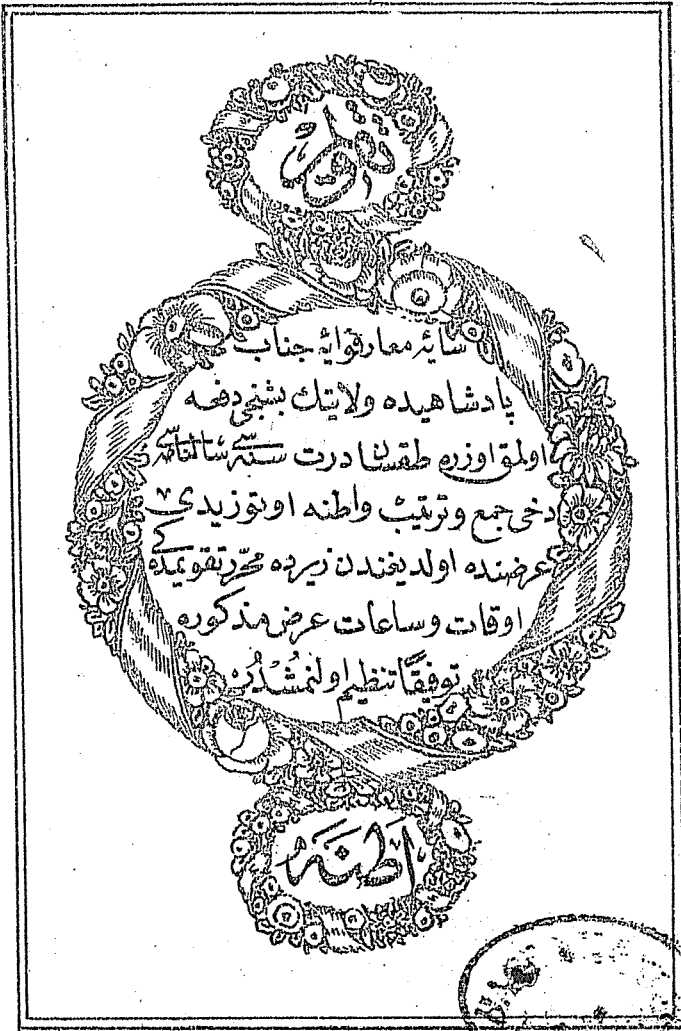 تقویم
سایۀ معارفوایۀ جناب
پادشاهیده ولایتك بشنجی دفعه
اولمق اوزره طقسان درت سنه‌سی سالنامه‌سی
دخی جمع وترتیب واطنه اوتوزیدی
عرضنده اولدیغندن زیرده محرّر تقویمده‌کی
اوقات وساعات عرض مذکوره
توفیقًا تنظیم اولنمشدُر
اطنه